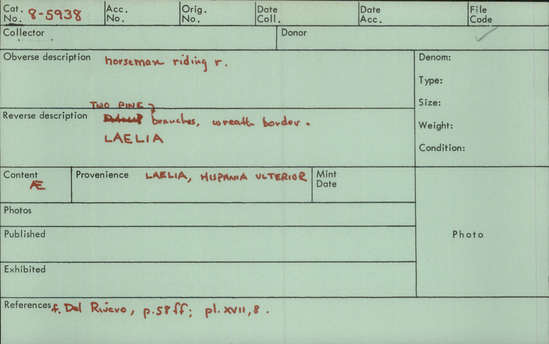 Cat. No. 8-5938 Acc. No. Orig. No. Date Coll. Date Acc. File Code
Collector Donor
Obverse description horseman riding r. Denom:
Type:
Size:
TWO PINE ?
Reverse description branches, wreath border. Weight:
LAELIA Condition:
Content Æ Provenience LAELIA, HISPANIA ULTERIOR Mint Date
Photos
Published Photo
Exhibited
References cf. Del Rivero, p.58ff; pl. XVII, 8.